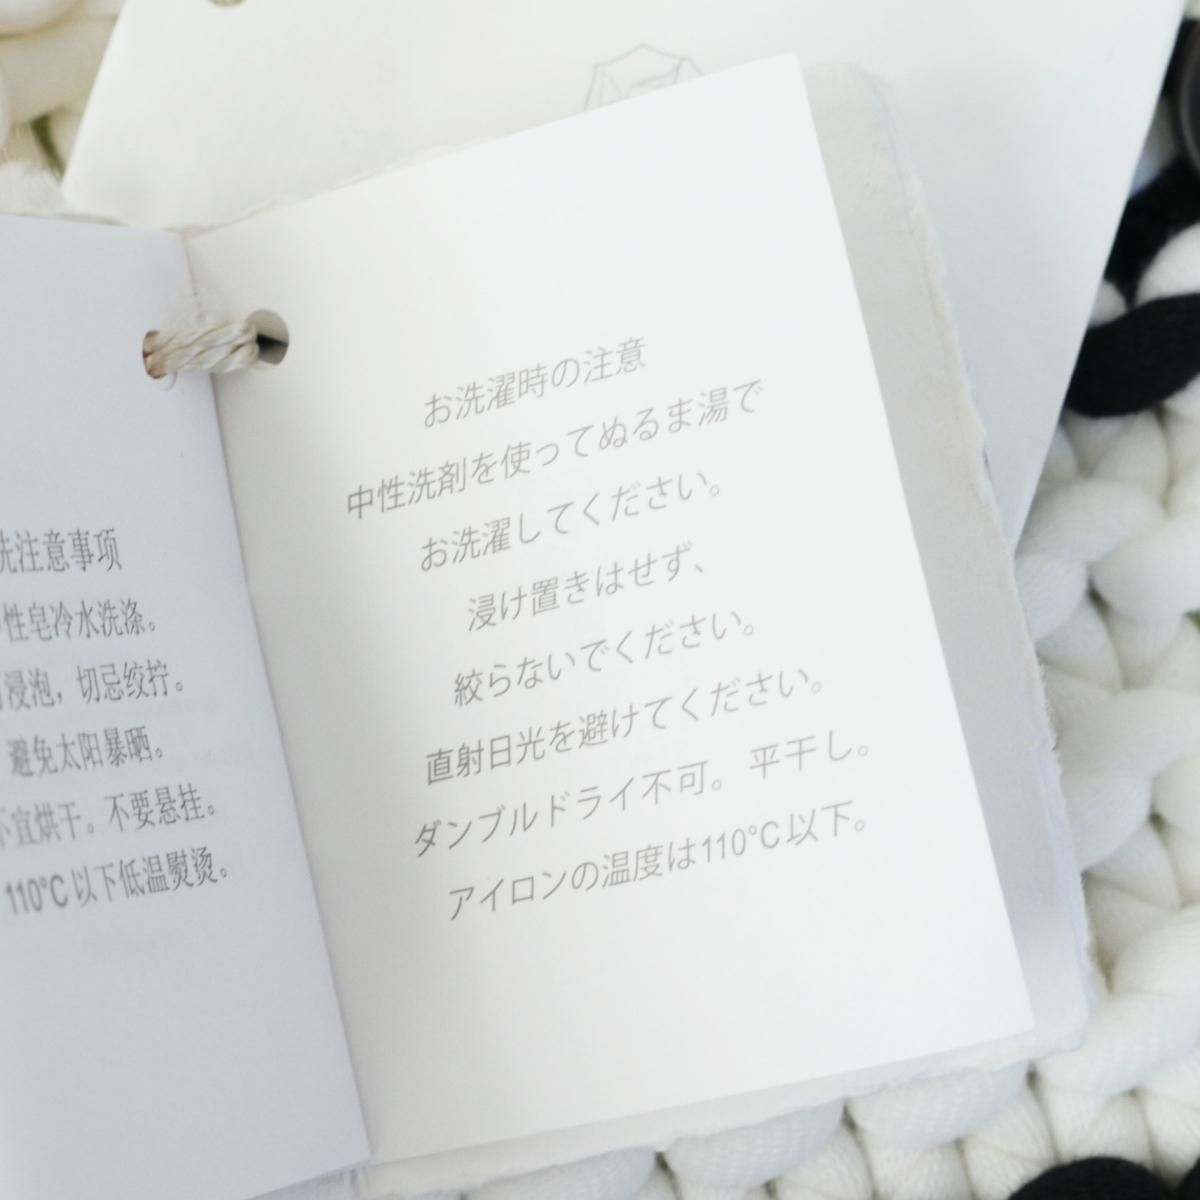 洗注意事项
性皂冷水洗涤。
浸泡，切忌绞拧。
避免太阳暴晒。
不宜烘干。不要悬挂。
110°C以下低温熨烫。
お洗濯時の注意
中性洗剤を使ってぬるま湯で
お洗濯してください。
浸け置きはせず、
絞らないでください。
直射日光を避けてください。
ダンブルドライ不可。平干し。
アイロンの温度は110°C以下。